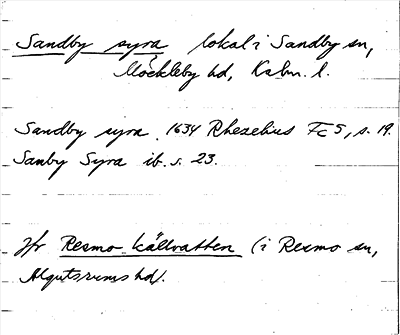 Sandby syra lokal i Sandby sn,
Möckleby hd, Kalm. l.
Sandby syra. 1634 Rhezelius Fc5, s. 19.
Samby Syra ib. s. 23.
Jfr Resmo källvatten (i Resmo sn,
Algutsrums hd).